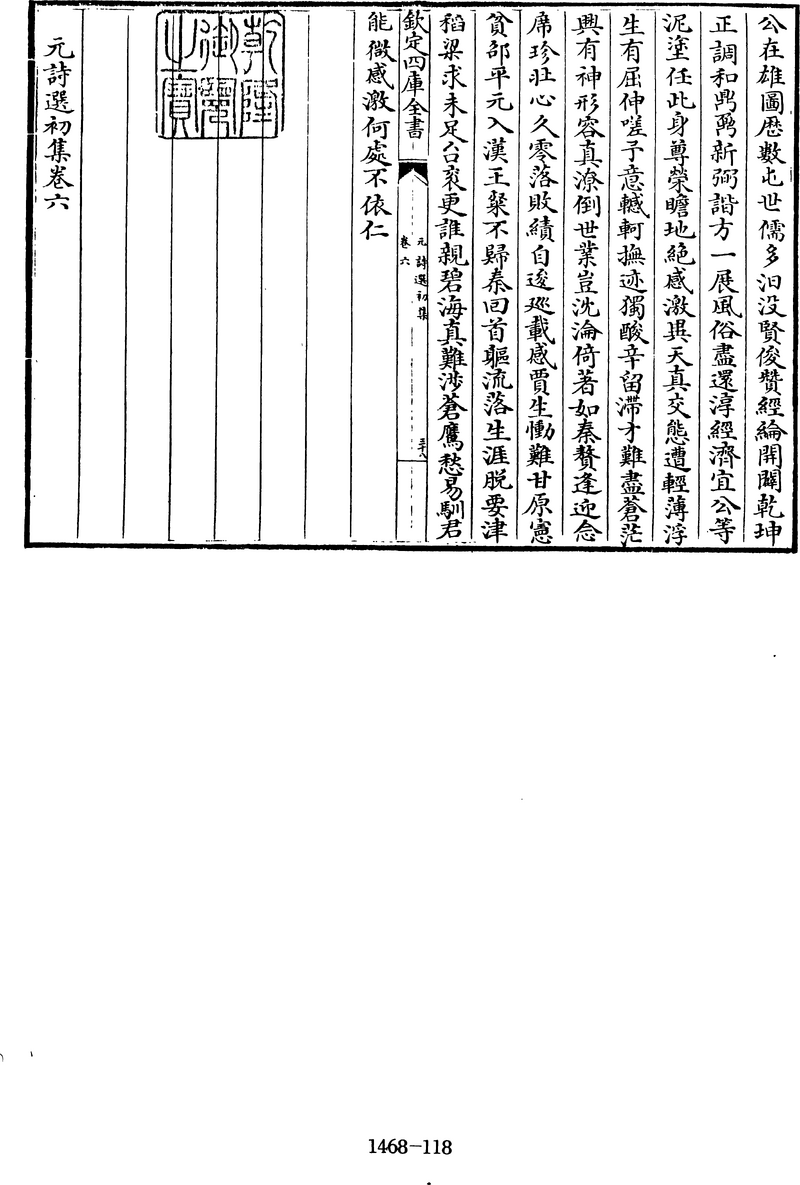 公在雄圖歴數屯世儒多汩没賢俊賛經綸開闢乾坤
正調和鼎鼐新弼諧方一展風俗盡還淳經濟宜公等
泥塗任此身尊榮瞻地絶感激異天真交態遭輕薄浮
生有屈伸嗟予意轗軻撫迹獨酸辛留滯才難盡蒼茫
興有神形容真潦倒世業豈沈淪倚著如秦贅逢迎念
席珍壯心久零落敗績自逡廵載感賈生慟難甘原憲
貧邵平元入漢王粲不歸秦回首驅流落生涯脱要津
稻粱求未足台衮更誰親碧海真難涉蒼鷹愁易馴君
欽定四庫全書
元詩選初集
卷六
三十八
能微感激何處不依仁
乾隆御覽之寶
元詩選初集卷六
1468-118